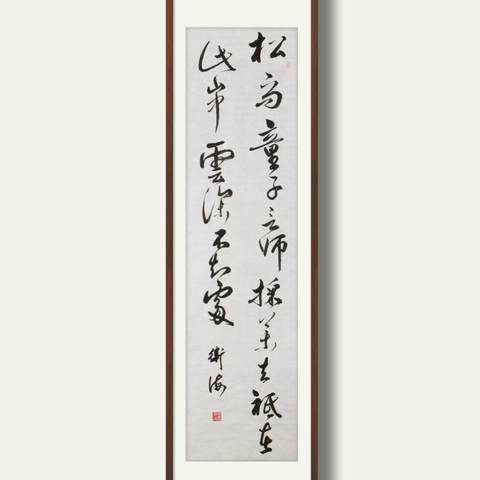 松下問童子言師採藥去祗在
此山中雲深不知處
衛海